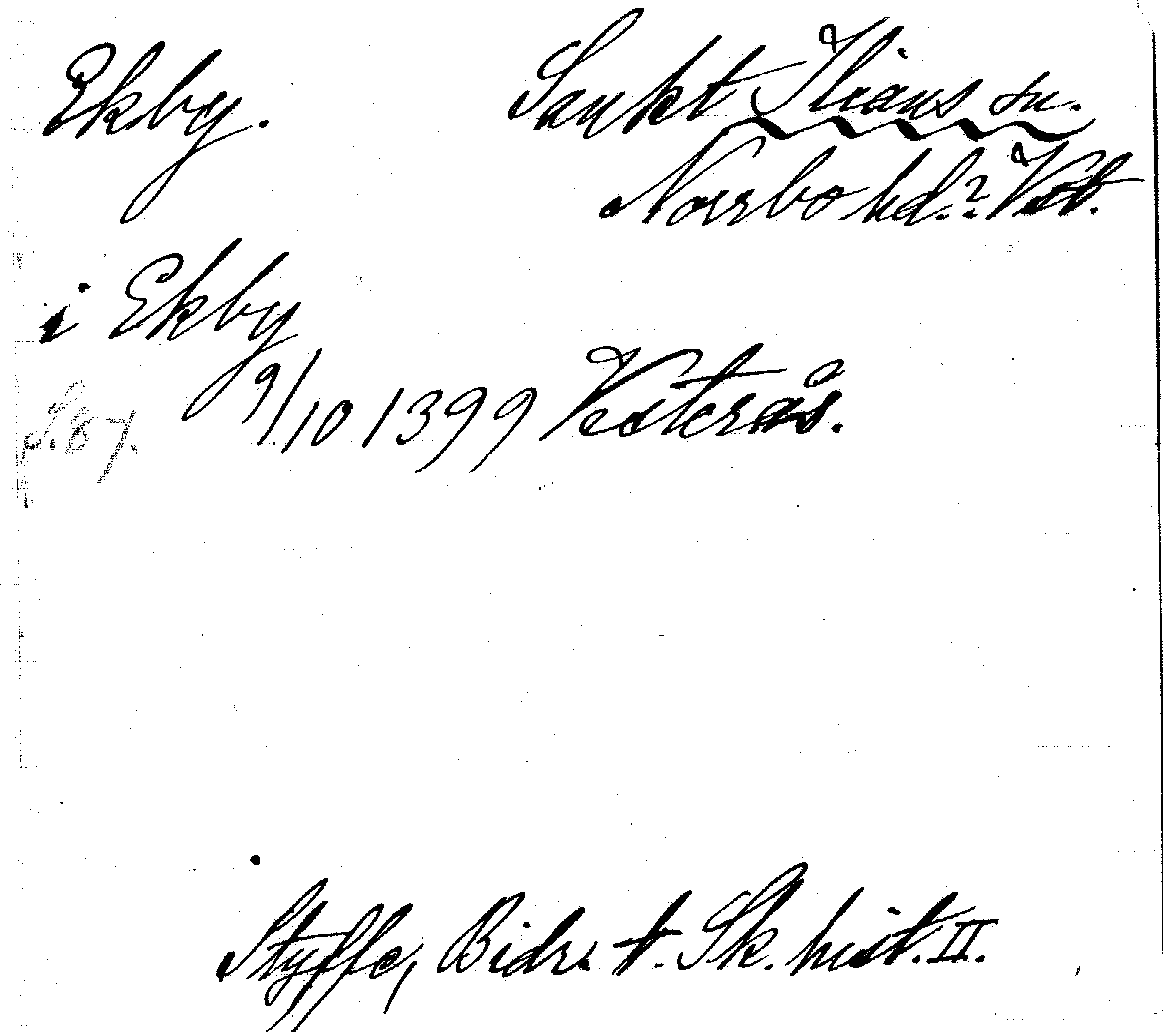 Ekby. Sankt Ilians sn.
Norrbo hd.? Vstm.
i Ekby
9/10 1399 Vesterås.
S. 87.
Styffe, Bidr. t. Sk. hist. II.